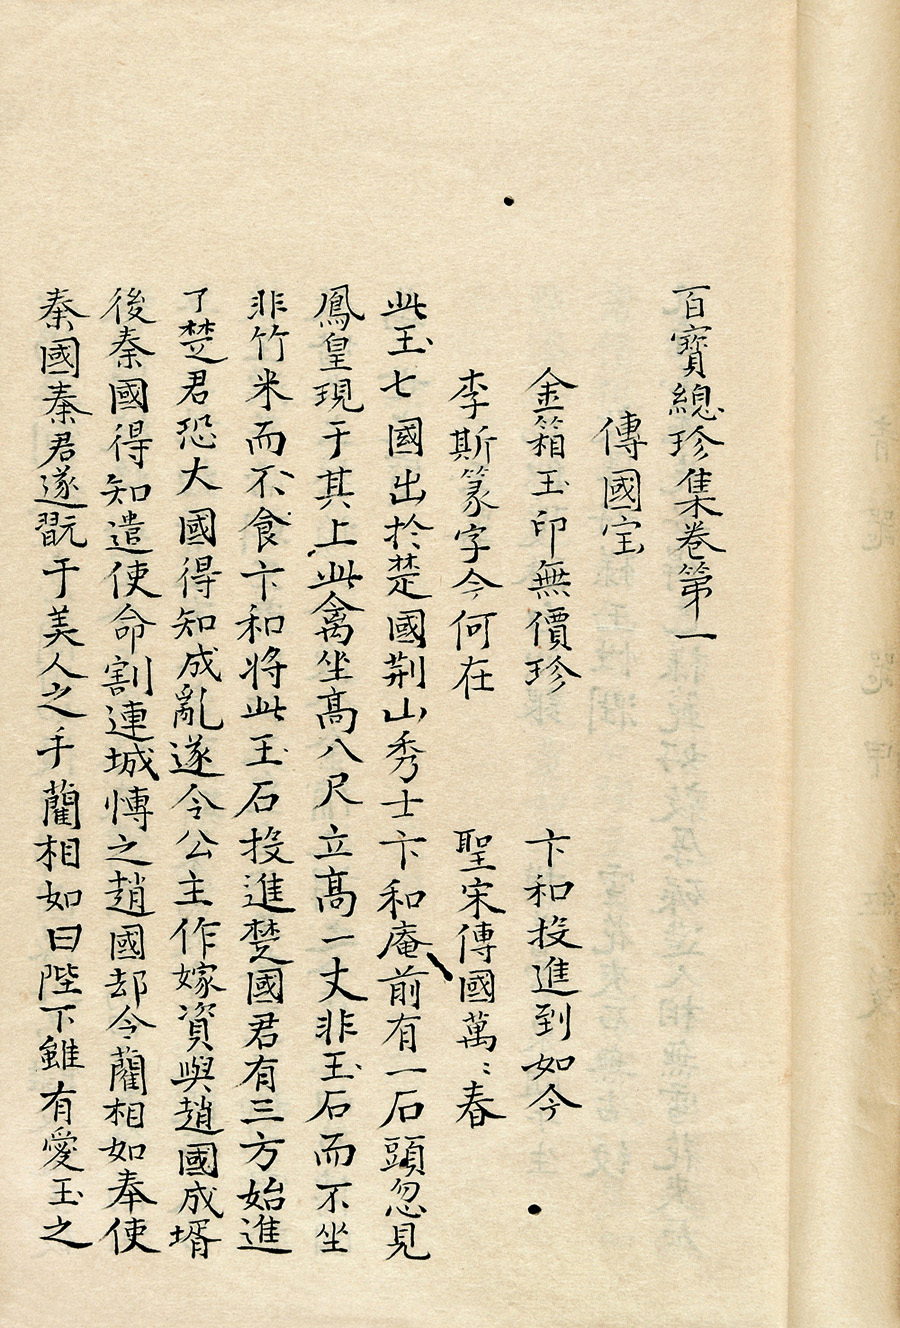 百寶總珍集卷第一
傳國宝
金箱玉印無價珍　卞和投進到如今
李斯篆字今何在　聖宋傳國萬〻春
此玉七國出於楚國荆山秀士卞和庵前有一石頭忽見
鳳皇現于其上此禽坐高八尺立高一丈非玉石而不坐
非竹米而不食卞和将此玉石投進楚國君有三方始進
了楚君恐大國得知成亂遂令公主作嫁資與趙國成壻
後秦國得知遣使命割連城愽之趙國却令藺相如奉使
秦國秦君遂翫于美人之手藺相如曰陛下雖有愛玉之